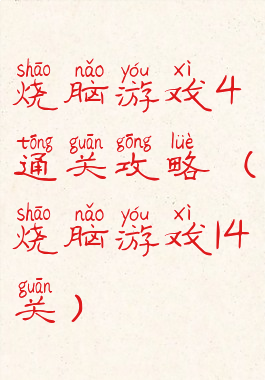 shāo nǎo yóu xì
烧脑游戏4
tōng guān gōng lüè
通关攻略（
shāo nǎo yóu xì
烧脑游戏14
guān
关）